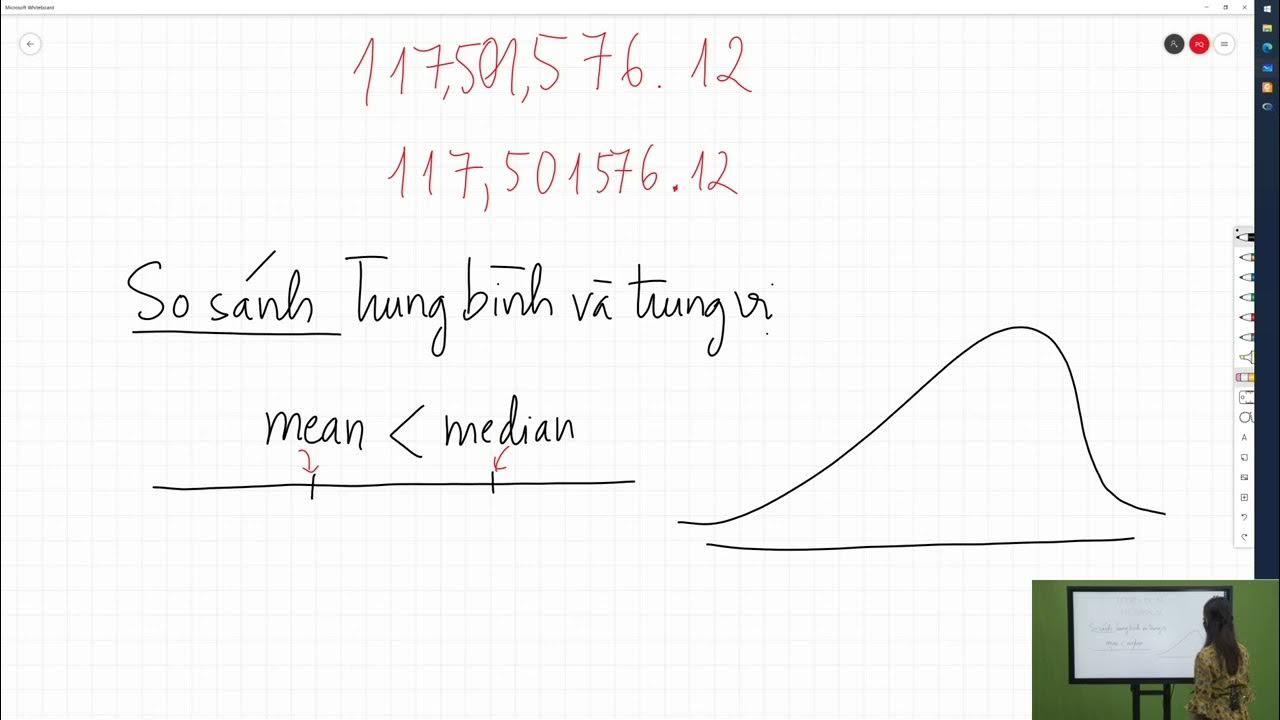 Microsoft Whiteboard
PQ
117,501,576.12
117,501576.12
So sánh Trung bình và trung vị
mean < median